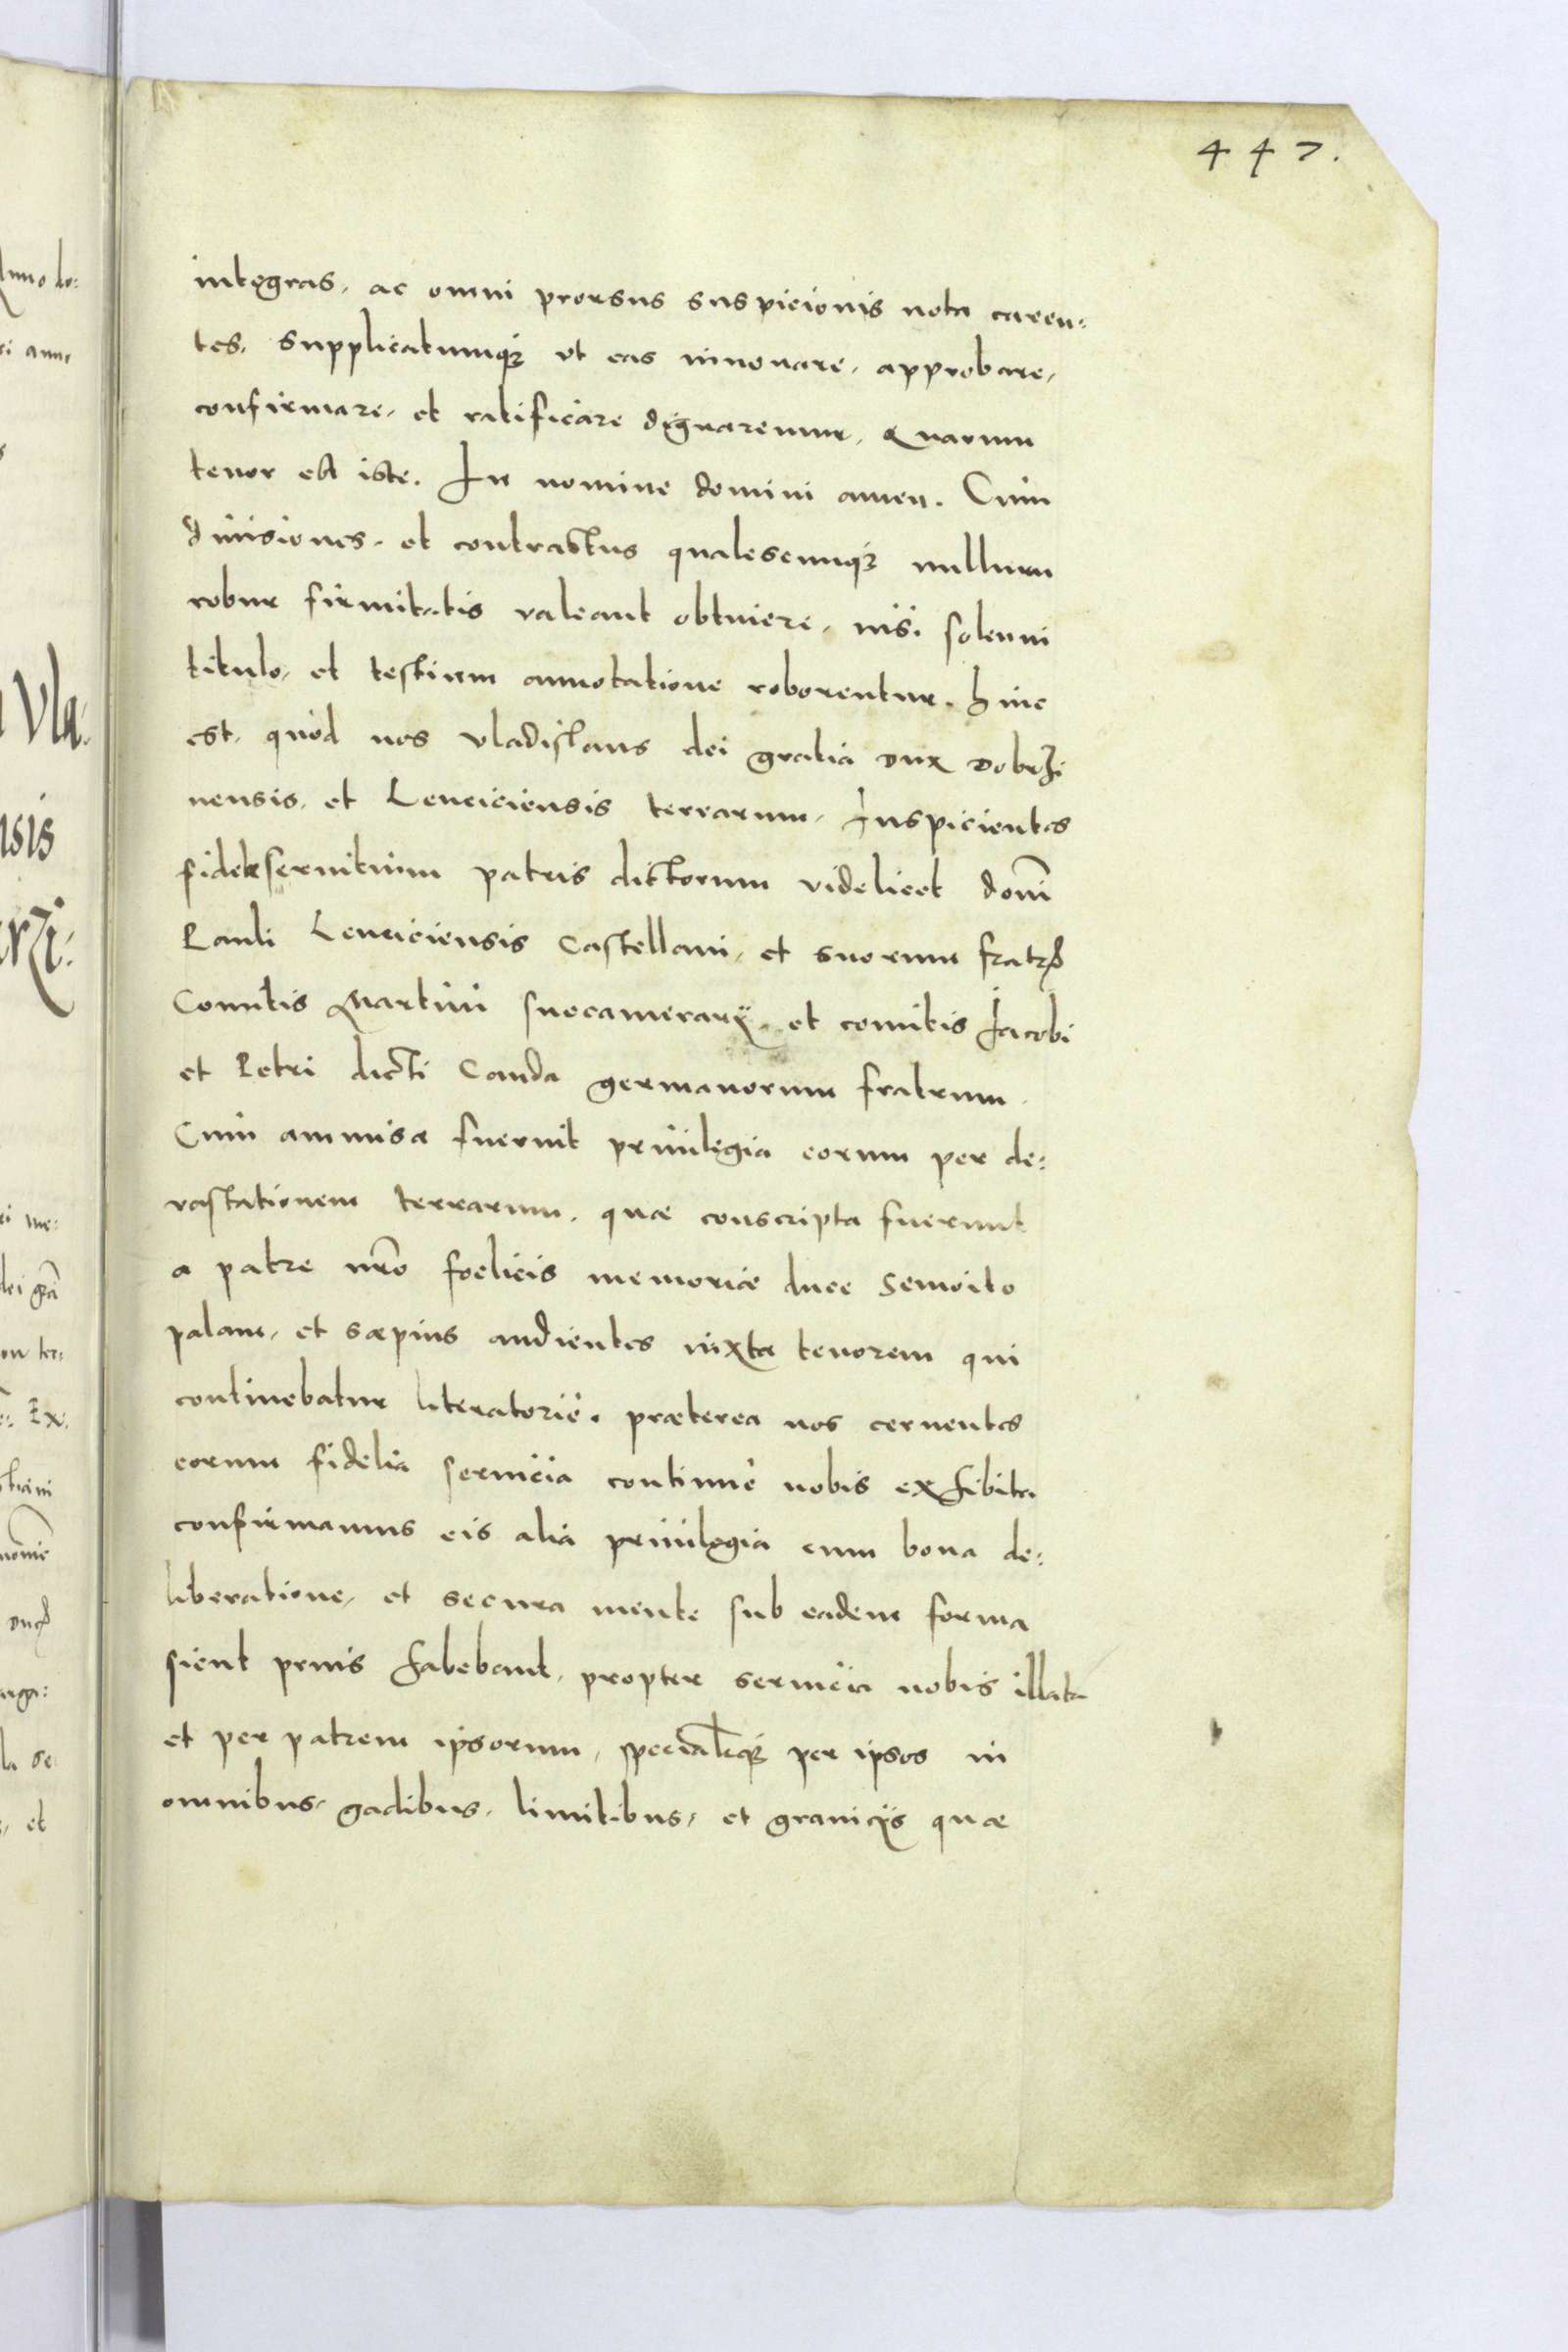 447.
integras, ac omni prorsus suspicionis nota caren:
tes, supplicatumq; vt eas innouare, approbare,
confirmare, et ratificare dignaremur, Quarum
tenor est iste. In nomine domini amen. Cum
diuisiones, et contractus qualescumq; nullum
robur firmitatis valeant obtinere, nisi solenni
titulo, et testium annotatione roborentur. hinc
est, quod nos Vladislaus dei gratia Dux Dobrzi
nensis, et Lenciciensis terrarum, Inspicientes
fidele seruitium patris dictorum videlicet domĩ
Pauli Lenciciensis Castellani, et suorum fratrꝝ
Comitis Martini succamerarij, et comitis Iacobi
et Petri dicti Cauda germanorum fratrum.
Cum ammisa fuerint priuilegia eorum per de:
vastationem terrarum, quae conscripta fuerunt
a patre nr̃o foelicis memoriae duce Semoito
palam, et saepius audientes iuxta tenorem qui
continebatur literatorie. praeterea nos cernentes
eorum fidelia seruicia continue nobis exhibita
confirmamus eis alia priuilegia cum bona de:
liberatione, et secura mente sub eadem forma
sicut prius habebant, propter seruicia nobis illata
et per patrem ipsorum, specialiterq; per ipsos in
omnibus, gadibus, limitibus, et granicijs quae
Vla:
nsis
rzi: